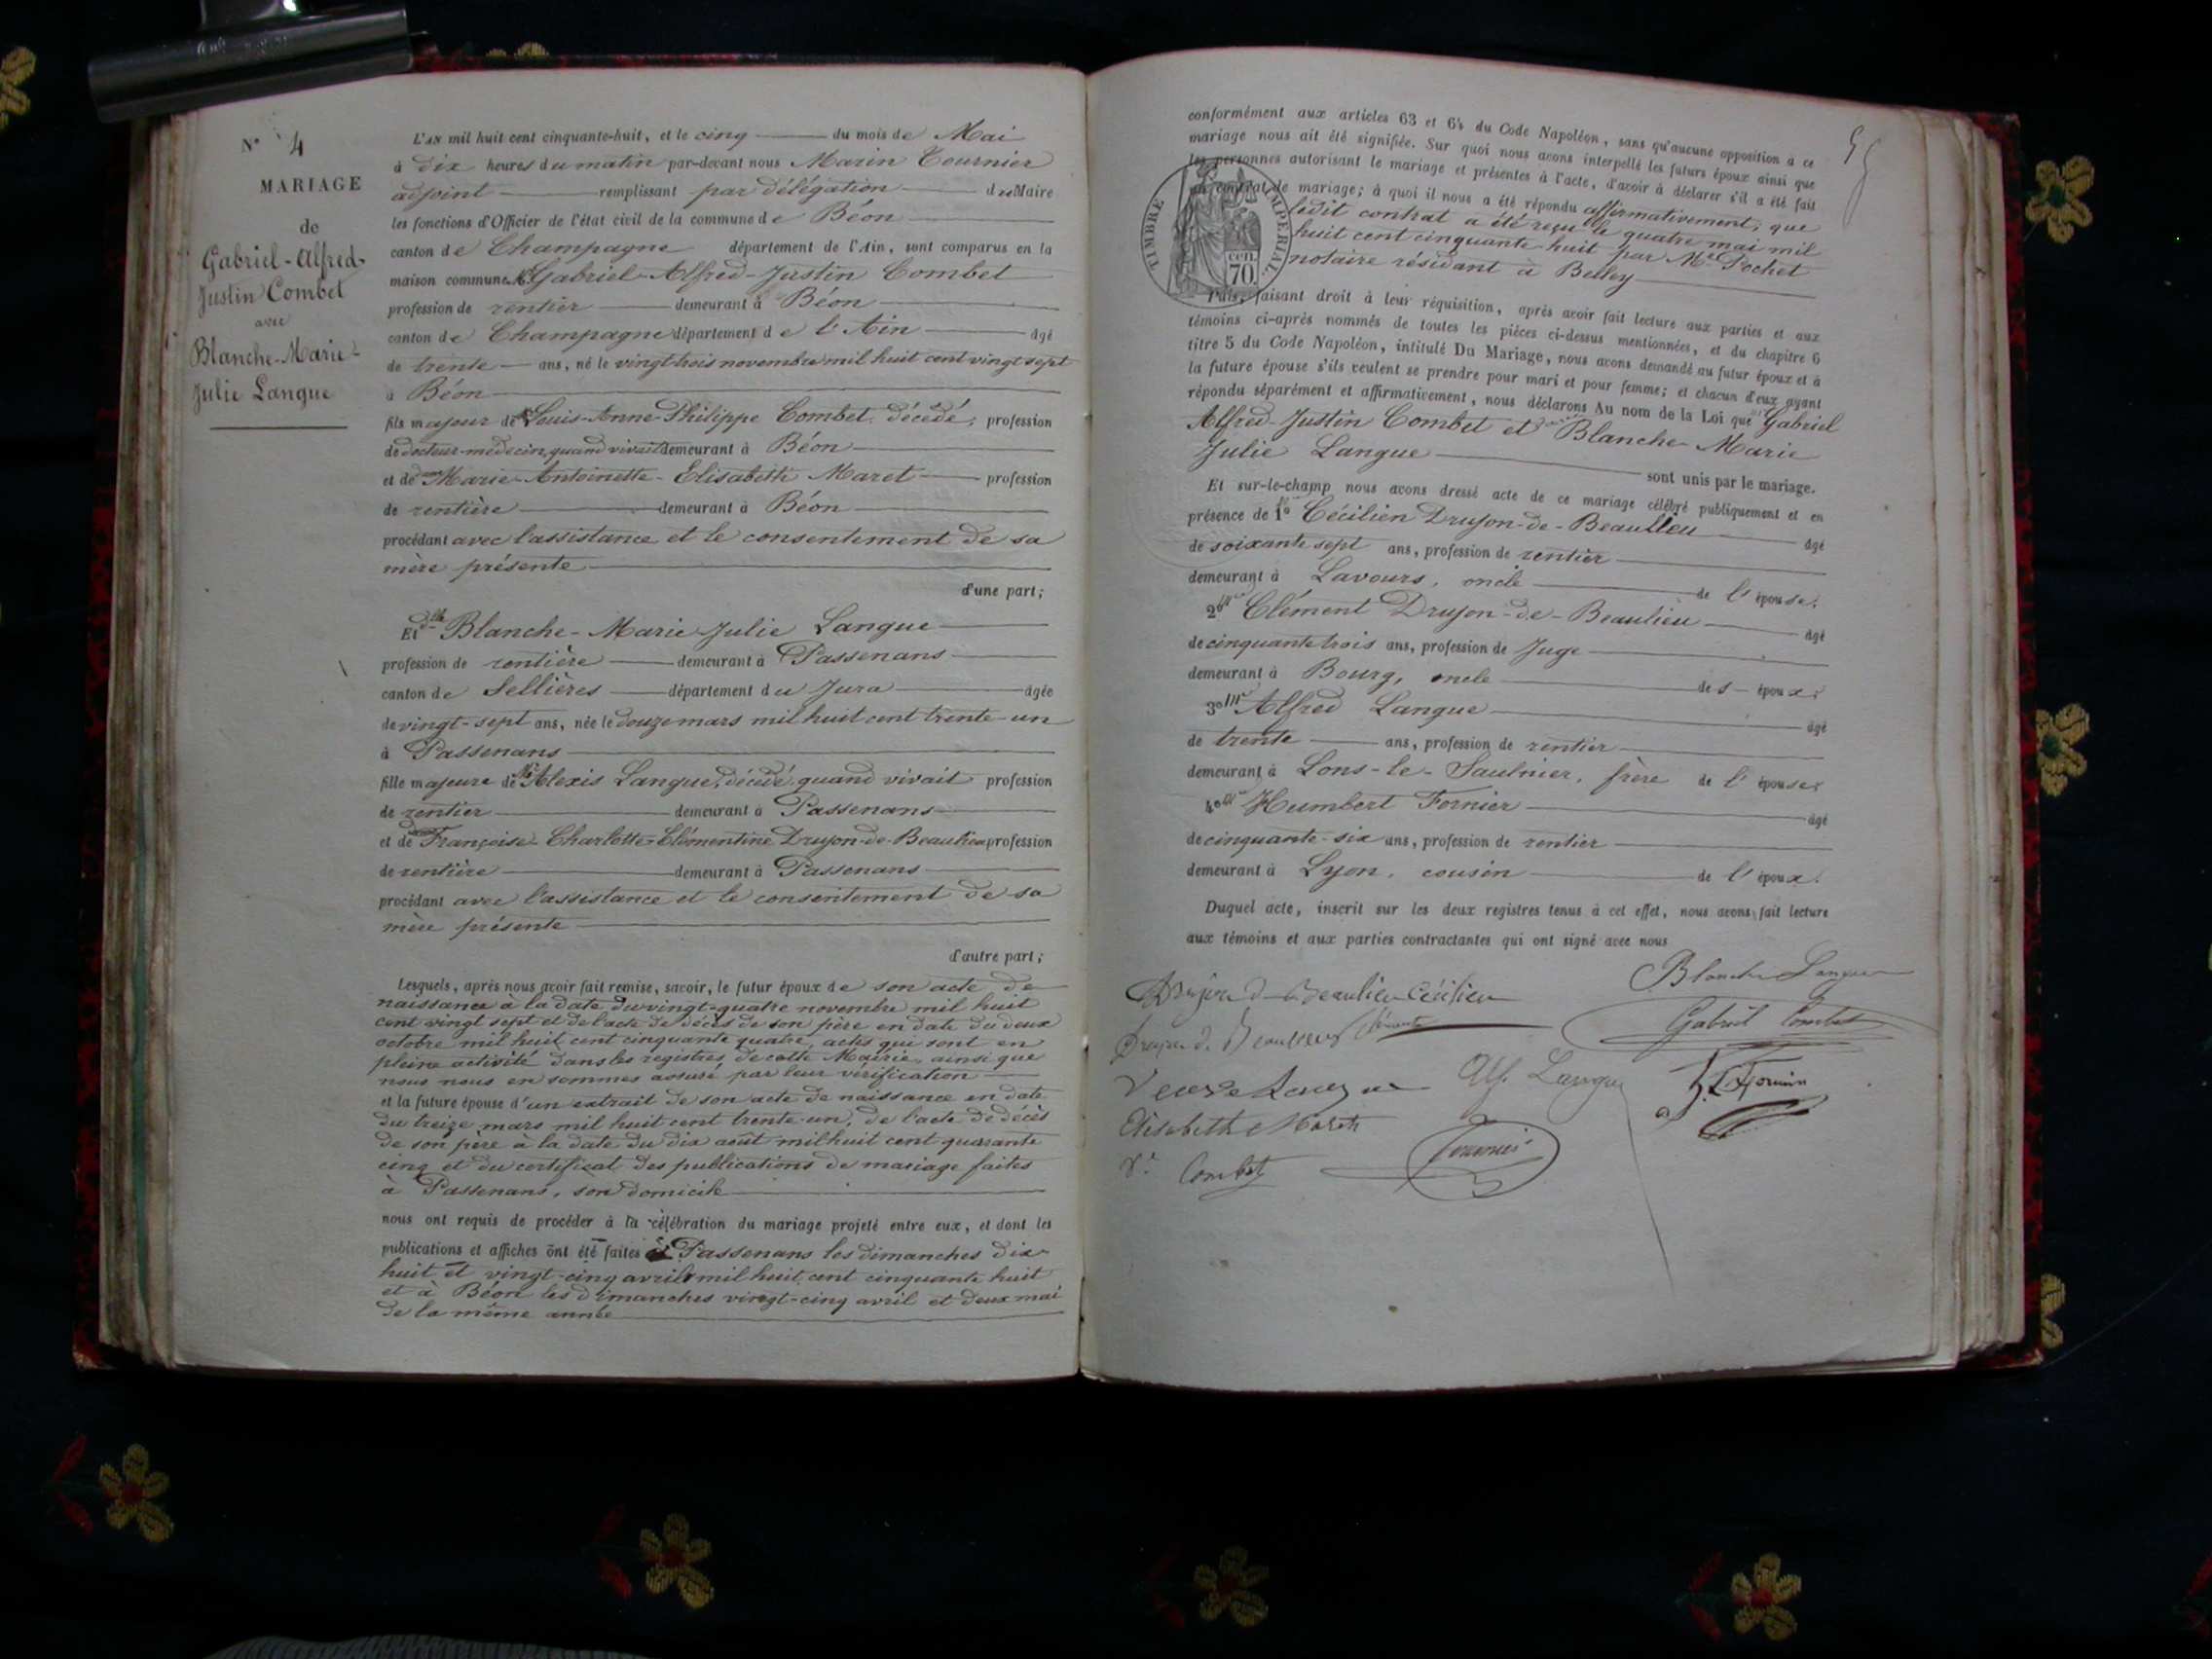 N° 4
MARIAGE
de
Gabriel-Alfred-
Justin Combet
avec
Blanche-Marie-
Julie Langue
L'AN mil huit cent cinquante-huit, et le cinq du mois de Mai
à dix heures du matin par-devant nous Marin Tournier
adjoint remplissant par délégation du Maire
les fonctions d'Officier de l'état civil de la commune de Béon
canton de Champagne département de l'Ain, sont comparus en la
maison commune Mr Gabriel-Alfred-Justin Combet
profession de rentier demeurant à Béon
canton de Champagne département de l'Ain âgé
de trente ans, né le vingt-trois novembre mil huit cent vingt sept
à Béon
fils majeur de Mr Louis-Anne-Philippe Combet, décédé, profession
de docteur-médecin, quand vivait demeurant à Béon
et de Marie-Antoinette-Elisabeth Maret profession
de rentière demeurant à Béon
procédant avec l'assistance et le consentement de sa
mère présente
d'une part;
Et Dlle Blanche-Marie-Julie Langue
profession de rentière demeurant à Passenans
canton de Sellières département du Jura âgée
de vingt-sept ans, née le douze mars mil huit cent trente-un
à Passenans
fille majeure de Mr Alexis Langue, décédé, quand vivait profession
de rentier demeurant à Passenans
et de Françoise-Charlotte-Clémentine Drujon-de-Beaulieu profession
de rentière demeurant à Passenans
procédant avec l'assistance et le consentement de sa
mère présente
d'autre part;
Lesquels, après nous avoir fait remise, savoir, le futur époux de son acte de
naissance à la date du vingt-quatre novembre mil huit
cent vingt sept et de l'acte de décès de son père en date du deux
octobre mil huit cent cinquante quatre, actes qui sont en
pleine activité dans les registres de cette Mairie, ainsi que
nous nous en sommes assuré par leur vérification
et la future épouse d'un extrait de son acte de naissance en date
du treize mars mil huit cent trente-un, de l'acte de décès
de son père à la date du dix août mil huit cent quarante
cinq et du certificat des publications de mariage faites
à Passenans, son domicile
nous ont requis de procéder à la célébration du mariage projeté entre eux, et dont les
publications et affiches ont été faites à Passenans les dimanches dix-
huit et vingt-cinq avril mil huit cent cinquante huit
et à Béon les dimanches vingt-cinq avril et deux mai
de la même année
conformément aux articles 63 et 64 du Code Napoléon, sans qu'aucune opposition à ce
mariage nous ait été signifiée. Sur quoi nous avons interpellé les futurs époux ainsi que
les personnes autorisant le mariage et présentes à l'acte, d'avoir à déclarer s'il a été fait
un contrat de mariage; à quoi il nous a été répondu affirmativement, que
ledit contrat a été reçu le quatre mai mil
huit cent cinquante-huit par Me Pochet
notaire résidant à Belley
TIMBRE IMPERIAL
CEN.
70
Puis, faisant droit à leur réquisition, après avoir fait lecture aux parties et aux
témoins ci-après nommés de toutes les pièces ci-dessus mentionnées, et du chapitre 6
titre 5 du Code Napoléon, intitulé Du Mariage, nous avons demandé au futur époux et à
la future épouse s'ils veulent se prendre pour mari et pour femme; et chacun d'eux ayant
répondu séparément et affirmativement, nous déclarons Au nom de la Loi que Gabriel
Alfred-Justin Combet et Blanche-Marie
Julie Langue
sont unis par le mariage.
Et sur-le-champ nous avons dressé acte de ce mariage célébré publiquement et en
présence de 1° Mr Cécilien Drujon-de-Beaulieu âgé
de soixante sept ans, profession de rentier
demeurant à Lavours, oncle de l'épouse.
2° Mr Clément Drujon-de-Beaulieu âgé
de cinquante trois ans, profession de Juge
demeurant à Bourg, oncle des époux.
3° Mr Alfred Langue âgé
de trente ans, profession de rentier
demeurant à Lons-le-Saulnier, frère de l'épouse.
4° Mr Humbert Fornier âgé
de cinquante-six ans, profession de rentier
demeurant à Lyon, cousin de l'époux.
Duquel acte, inscrit sur les deux registres tenus à cet effet, nous avons fait lecture
aux témoins et aux parties contractantes qui ont signé avec nous
Blanche Langue
Drujon de Beaulieu Cécilien
Gabriel Combet
Drujon de Beaulieu Clément
Veuve Langue
Alf. Langue
Fornier
Elisabeth Maret
Ve Combet
Tournier